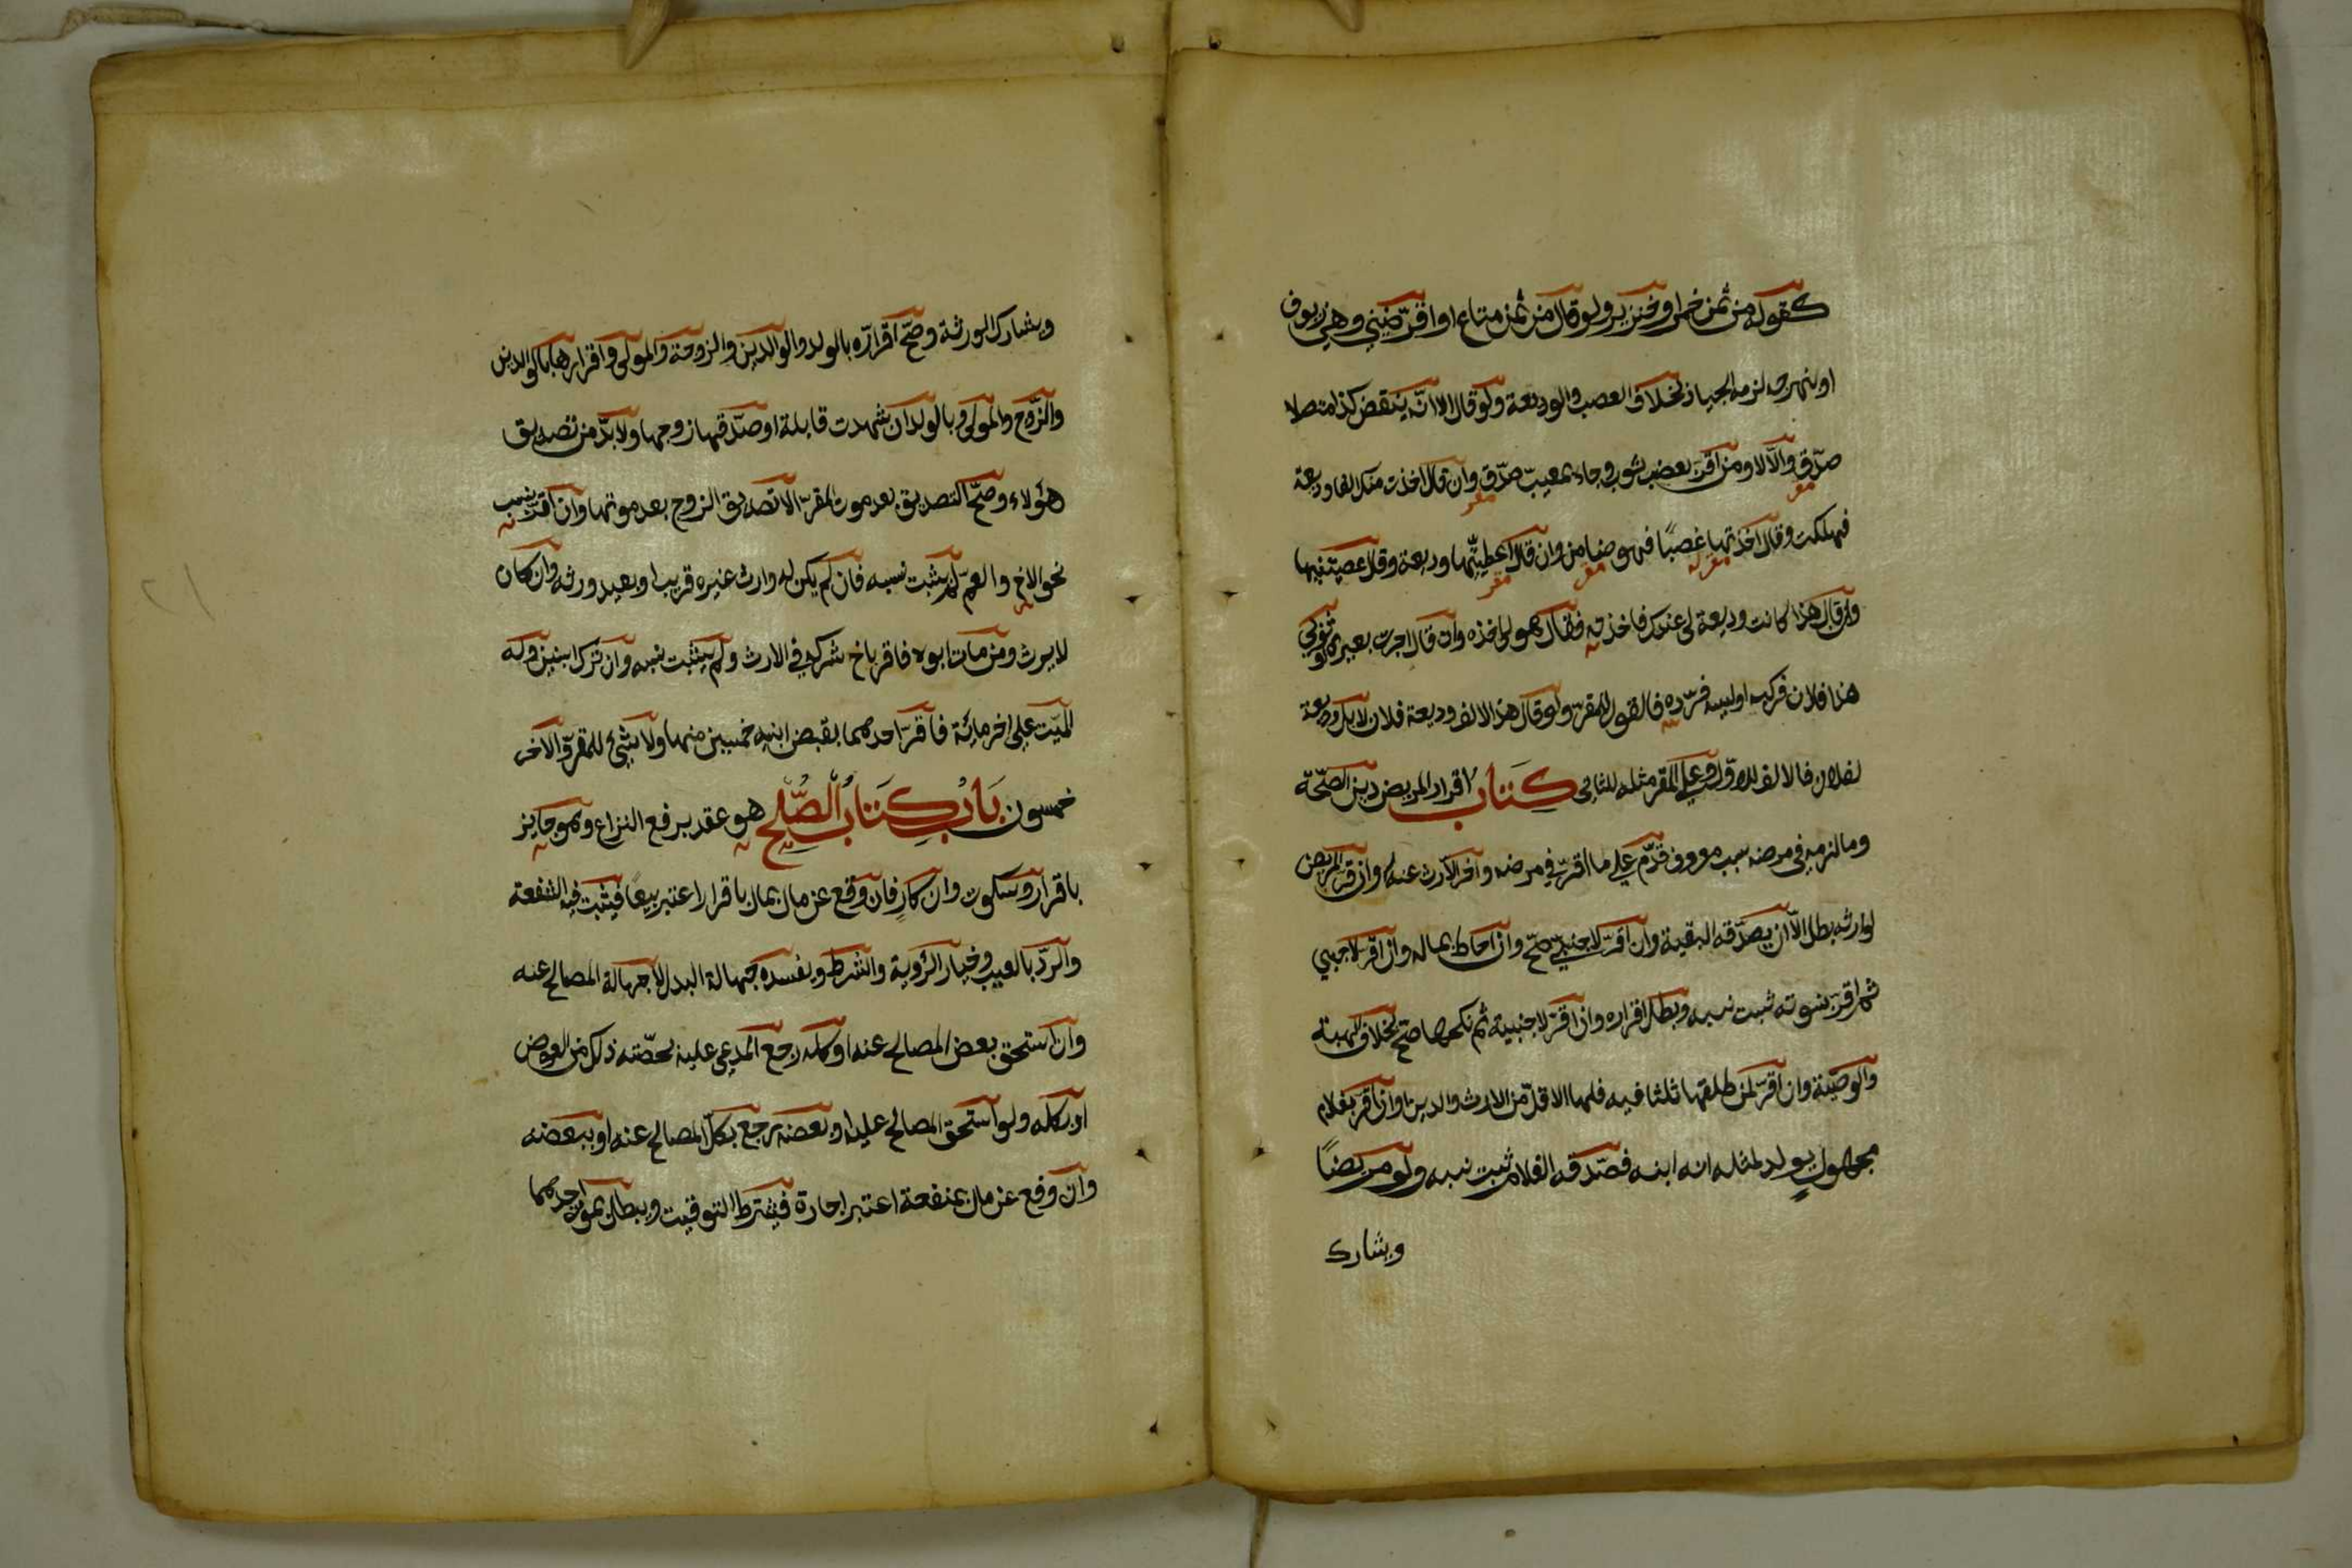 كقوله من ثمن خمر او خنزير ولو قال من ثمن متاع او اقرضني وهي زيوف
او نبهرجه لزمه الجياد بخلاف الغصب والوديعة ولو قال الا انه ينقص كذا متصلا
صدّق والّا لا ومن اقرّ بغصب ثوب وجاء بمعيب صدّق وان قال اخذت منك الفا وديعة
فهلكت وقال اخذتها غصبًا فهو ضامن وان قال اعطيتنيها وديعة وقال غصبتنيها
وان قال هذا كانت وديعة لى عندك فاخذته فقال هو لى اخذه وان قال اجرت بعيرى او ثوبى
هذا فلانا فركبه او لبسه فردّه فالقول للمقرّ ولو قال هذا الالف وديعة فلان لا بل وديعة
لفلان فالالف للاوّل وعلى المقر مثله للثانى كتاب اقرار المريض دين الصّحّة
وما لزمه فى مرضه بسبب معروف قدّم على ما اقرّ فى مرضه واخر الارث عنه وان اقرّ المريض
لوارثه بطل الّا ان يصدّقه البقية وان اقرّ لاجنبيّ صحّ وان احاط بماله وان اقرّ لاجنبي
ثم اقرّ ببنوته ثبت نسبه وبطل اقراره وان اقرّ لاجنبية ثم نكحها صحّ بخلاف الهبة
والوصيّة وان اقرّ لمن طلقها ثلثا فيه فلها الاقلّ من الارث والدين وان اقر بغلام
مجهول يولد لمثله انه ابنه فصدّقه الغلام ثبت نسبه ولو مريضًا
ويشارك
ويشارك الورثة وصحّ اقراره بالولد والوالدين والزوجة والمولى واقرارها بالوالدين
والزّوج والمولى وبالولد ان شهدت قابلة او صدّقها زوجها ولا بدّ من تصديق
هؤلاء وصحّ التصديق بعد موت المقرّ الا تصديق الزوج بعد موتها وان اقرّ بنسب
نحو الاخ والعمّ لم يثبت نسبه فان لم يكن له وارث غيره قريب او بعيد ورثه وان كان
لا يرث ومن مات ابوه فاقر باخ شركه فى الارث ولم يثبت نسبه وان ترك ابنين وله
الميّت على اخر مائة فاقرّ احدهما بقبض ابيه خمسين منها ولا شئ للمقرّ والاخر
خمسون باب كتاب الصّلح هو عقد يرفع النزاع وهو جايز
باقرار وسكوت وانكار فان وقع عن مال بمال باقرار اعتبر بيعًا فيثبت فيه الشفعة
والردّ بالعيب وخيار الرؤية والشرط ويفسده جهالة البدل لا جهالة المصالح عنه
وان استحق بعض المصالح عنه او كله رجع المدعى عليه بحصّته ذلك من العوض
او بكله ولو استحق المصالح عليه او بعضه رجع بكلّ المصالح عنه او ببعضه
وان وقع عن مال بمنفعة اعتبر اجارة فيشترط التوقيت ويبطل بموت احدهما